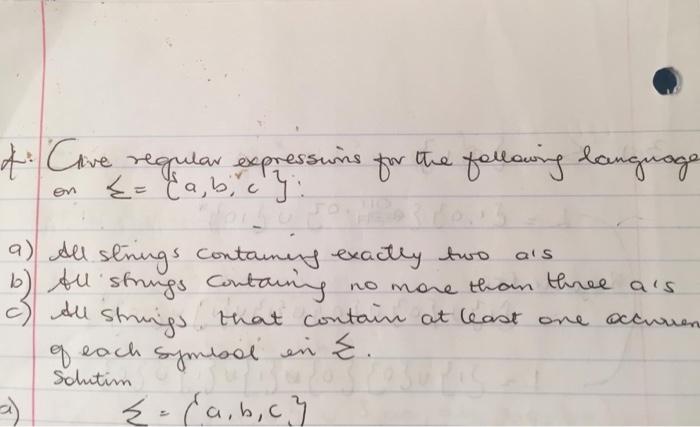 Give regular expressions for the following language
on Σ = {a, b, c}:
a) All strings containing exactly two a's
b) All strings containing no more than three a's
c) All strings that contain at least one occurren
of each symbol in Σ.
Solution
a) Σ = {a, b, c}